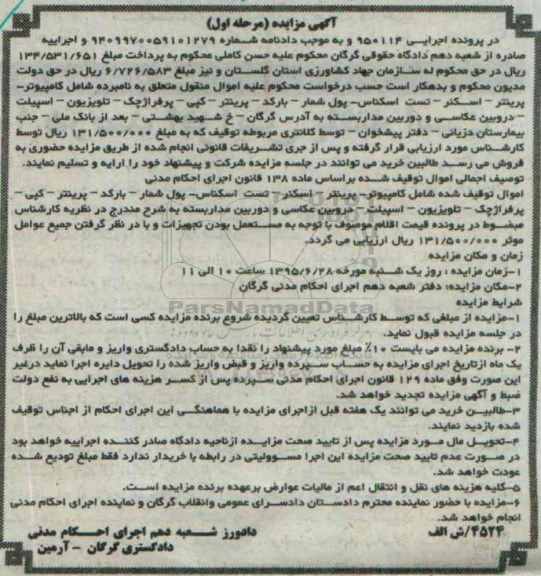 آگهی مزایده (مرحله اول)
در پرونده اجرایی ۹۵۰۱۱۴ و به موجب دادنامه شماره ۹۴۰۹۹۷۰۰۵۹۱۰۱۲۷۹ و اجراییه
صادره از شعبه دهم دادگاه حقوقی گرگان محکوم علیه حسن کاملی محکوم به پرداخت مبلغ ۱۳۴/۵۳۱/۶۵۱
ریال در حق محکوم له سازمان جهاد کشاورزی استان گلستان و نیز مبلغ ۶/۷۲۶/۵۸۳ ریال در حق دولت
مدیون محکوم و بدهکار است حسب درخواست محکوم علیه اموال منقول متعلق به نامبرده شامل کامپیوتر-
پرینتر - اسکنر - تست اسکناس- پول شمار - بارکد - پرینتر - کپی - پرفراژچک - تلویزیون - اسپیلت
-دروبین عکاسی و دوربین مداربسته به آدرس گرگان - خ شهید بهشتی - بعد از بانک ملی - جنب
بیمارستان دزیانی - دفتر پیشخوان - توسط کلانتری مربوطه توقیف که به مبلغ ۱۳۱/۵۰۰/۰۰۰ ریال توسط
کارشناس مورد ارزیابی قرار گرفته و پس از جری تشریفات قانونی انجام شده از طریق مزایده حضوری به
فروش می رسد طالبین خرید می توانند در جلسه مزایده شرکت و پیشنهاد خود را ارایه و تسلیم نمایند.
توصیف اجمالی اموال توقیف شده براساس ماده ۱۳۸ قانون اجرای احکام مدنی
اموال توقیف شده شامل کامپیوتر- پرینتر - اسکنر - تست اسکناس- پول شمار - بارکد - پرینتر - کپی -
پرفراژچک - تلویزیون - اسپیلت - دروبین عکاسی و دوربین مداربسته به شرح مندرج در نظریه کارشناس
مضبوط در پرونده قیمت اقلام موصوف با توجه به مستعمل بودن تجهیزات و با در نظر گرفتن جمیع عوامل
موثر ۱۳۱/۵۰۰/۰۰۰ ریال ارزیابی می گردد.
زمان و مکان مزایده
۱-زمان مزایده : روز یک شنبه مورخه ۱۳۹۵/۶/۲۸ ساعت ۱۰ الی ۱۱
۲-مکان مزایده: دفتر شعبه دهم اجرای احکام مدنی گرگان
ParsNamadData
شرایط مزایده
۱-مزایده از مبلغی که توسط کارشناس تعیین گردیده شروع برنده مزایده کسی است که بالاترین مبلغ را
در جلسه مزایده قبول نماید.
۲- برنده مزایده می بایست ۱۰٪ مبلغ مورد پیشنهاد را نقدا به حساب دادگستری واریز و مابقی آن را ظرف
یک ماه ازتاریخ اجرای مزایده به حساب سپرده واریز و قبض واریز شده را تحویل دایره اجرا نماید درغیر
این صورت وفق ماده ۱۲۹ قانون اجرای احکام مدنی سپرده پس از کسر هزینه های اجرایی به نفع دولت
ضبط و آگهی مزایده تجدید خواهد شد.
۳-طالبین خرید می توانند یک هفته قبل ازاجرای مزایده با هماهنگی این اجرای احکام از اجناس توقیف
شده بازدید نمایند.
۴-تحویل مال مورد مزایده پس از تایید صحت مزایده ازناحیه دادگاه صادر کننده اجراییه خواهد بود
در صورت عدم تایید صحت مزایده این اجرا مسوولیتی در رابطه با خریدار ندارد فقط مبلغ تودیع شده
عودت خواهد شد.
۵-کلیه هزینه های نقل و انتقال اعم از مالیات عوارض برعهده برنده مزایده است.
۶-مزایده با حضور نماینده محترم دادستان دادسرای عمومی وانقلاب گرگان و نماینده اجرای احکام مدنی
انجام خواهد شد.
۴۵۲۴/ش الف
دادورز شعبه دهم اجرای احکام مدنی
دادگستری گرگان - آرمین